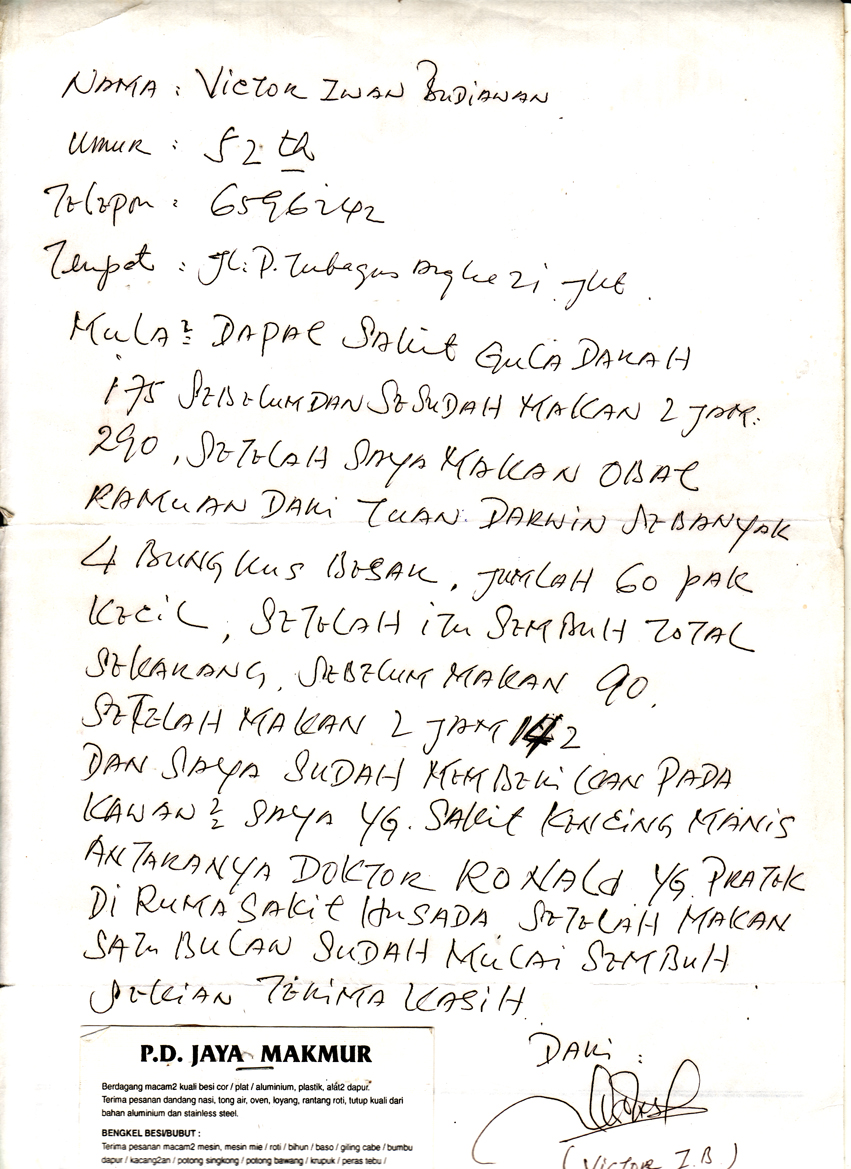 NAMA : VICTOR IWAN BUDIAWAN
Umur : 52 th
Telepon : 6596242
Tempat : Jl. P. Tubagus Angke 21 Jkt.
MULA2 DAPAT SAKIT GULA DARAH
175 SEBELUM DAN SESUDAH MAKAN 2 JAM.
290, SETELAH SAYA MAKAN OBAT
RAMUAN DARI TUAN DARWIN SEBANYAK
4 BUNGKUS BESAR, JUMLAH 60 PAK
KECIL, SETELAH ITU SEMBUH TOTAL
SEKARANG, SEBELUM MAKAN 90,
SETELAH MAKAN 2 JAM 142
DAN SAYA SUDAH MEMBERIKAN PADA
KAWAN2 SAYA YG. SAKIT KENCING MANIS
ANTARANYA DOKTOR RONALD YG PRATEK
DI RUMA SAKIT HUSADA, SETELAH MAKAN
SATU BULAN SUDAH MULAI SEMBUH
SEKIAN TERIMA KASIH
DARI :
(VICTOR I.B)
P.D. JAYA MAKMUR
Berdagang macam2 kuali besi cor / plat / aluminium, plastik, alat2 dapur.
Terima pesanan dandang nasi, tong air, oven, loyang, rantang roti, tutup kuali dari
bahan aluminium dan stainless steel.
BENGKEL BESI/BUBUT :
Terima pesanan macam2 mesin, mesin mie / roti / bihun / baso / giling cabe / bumbu
dapur / kacang2an / potong singkong / potong bawang / krupuk / peras tebu /